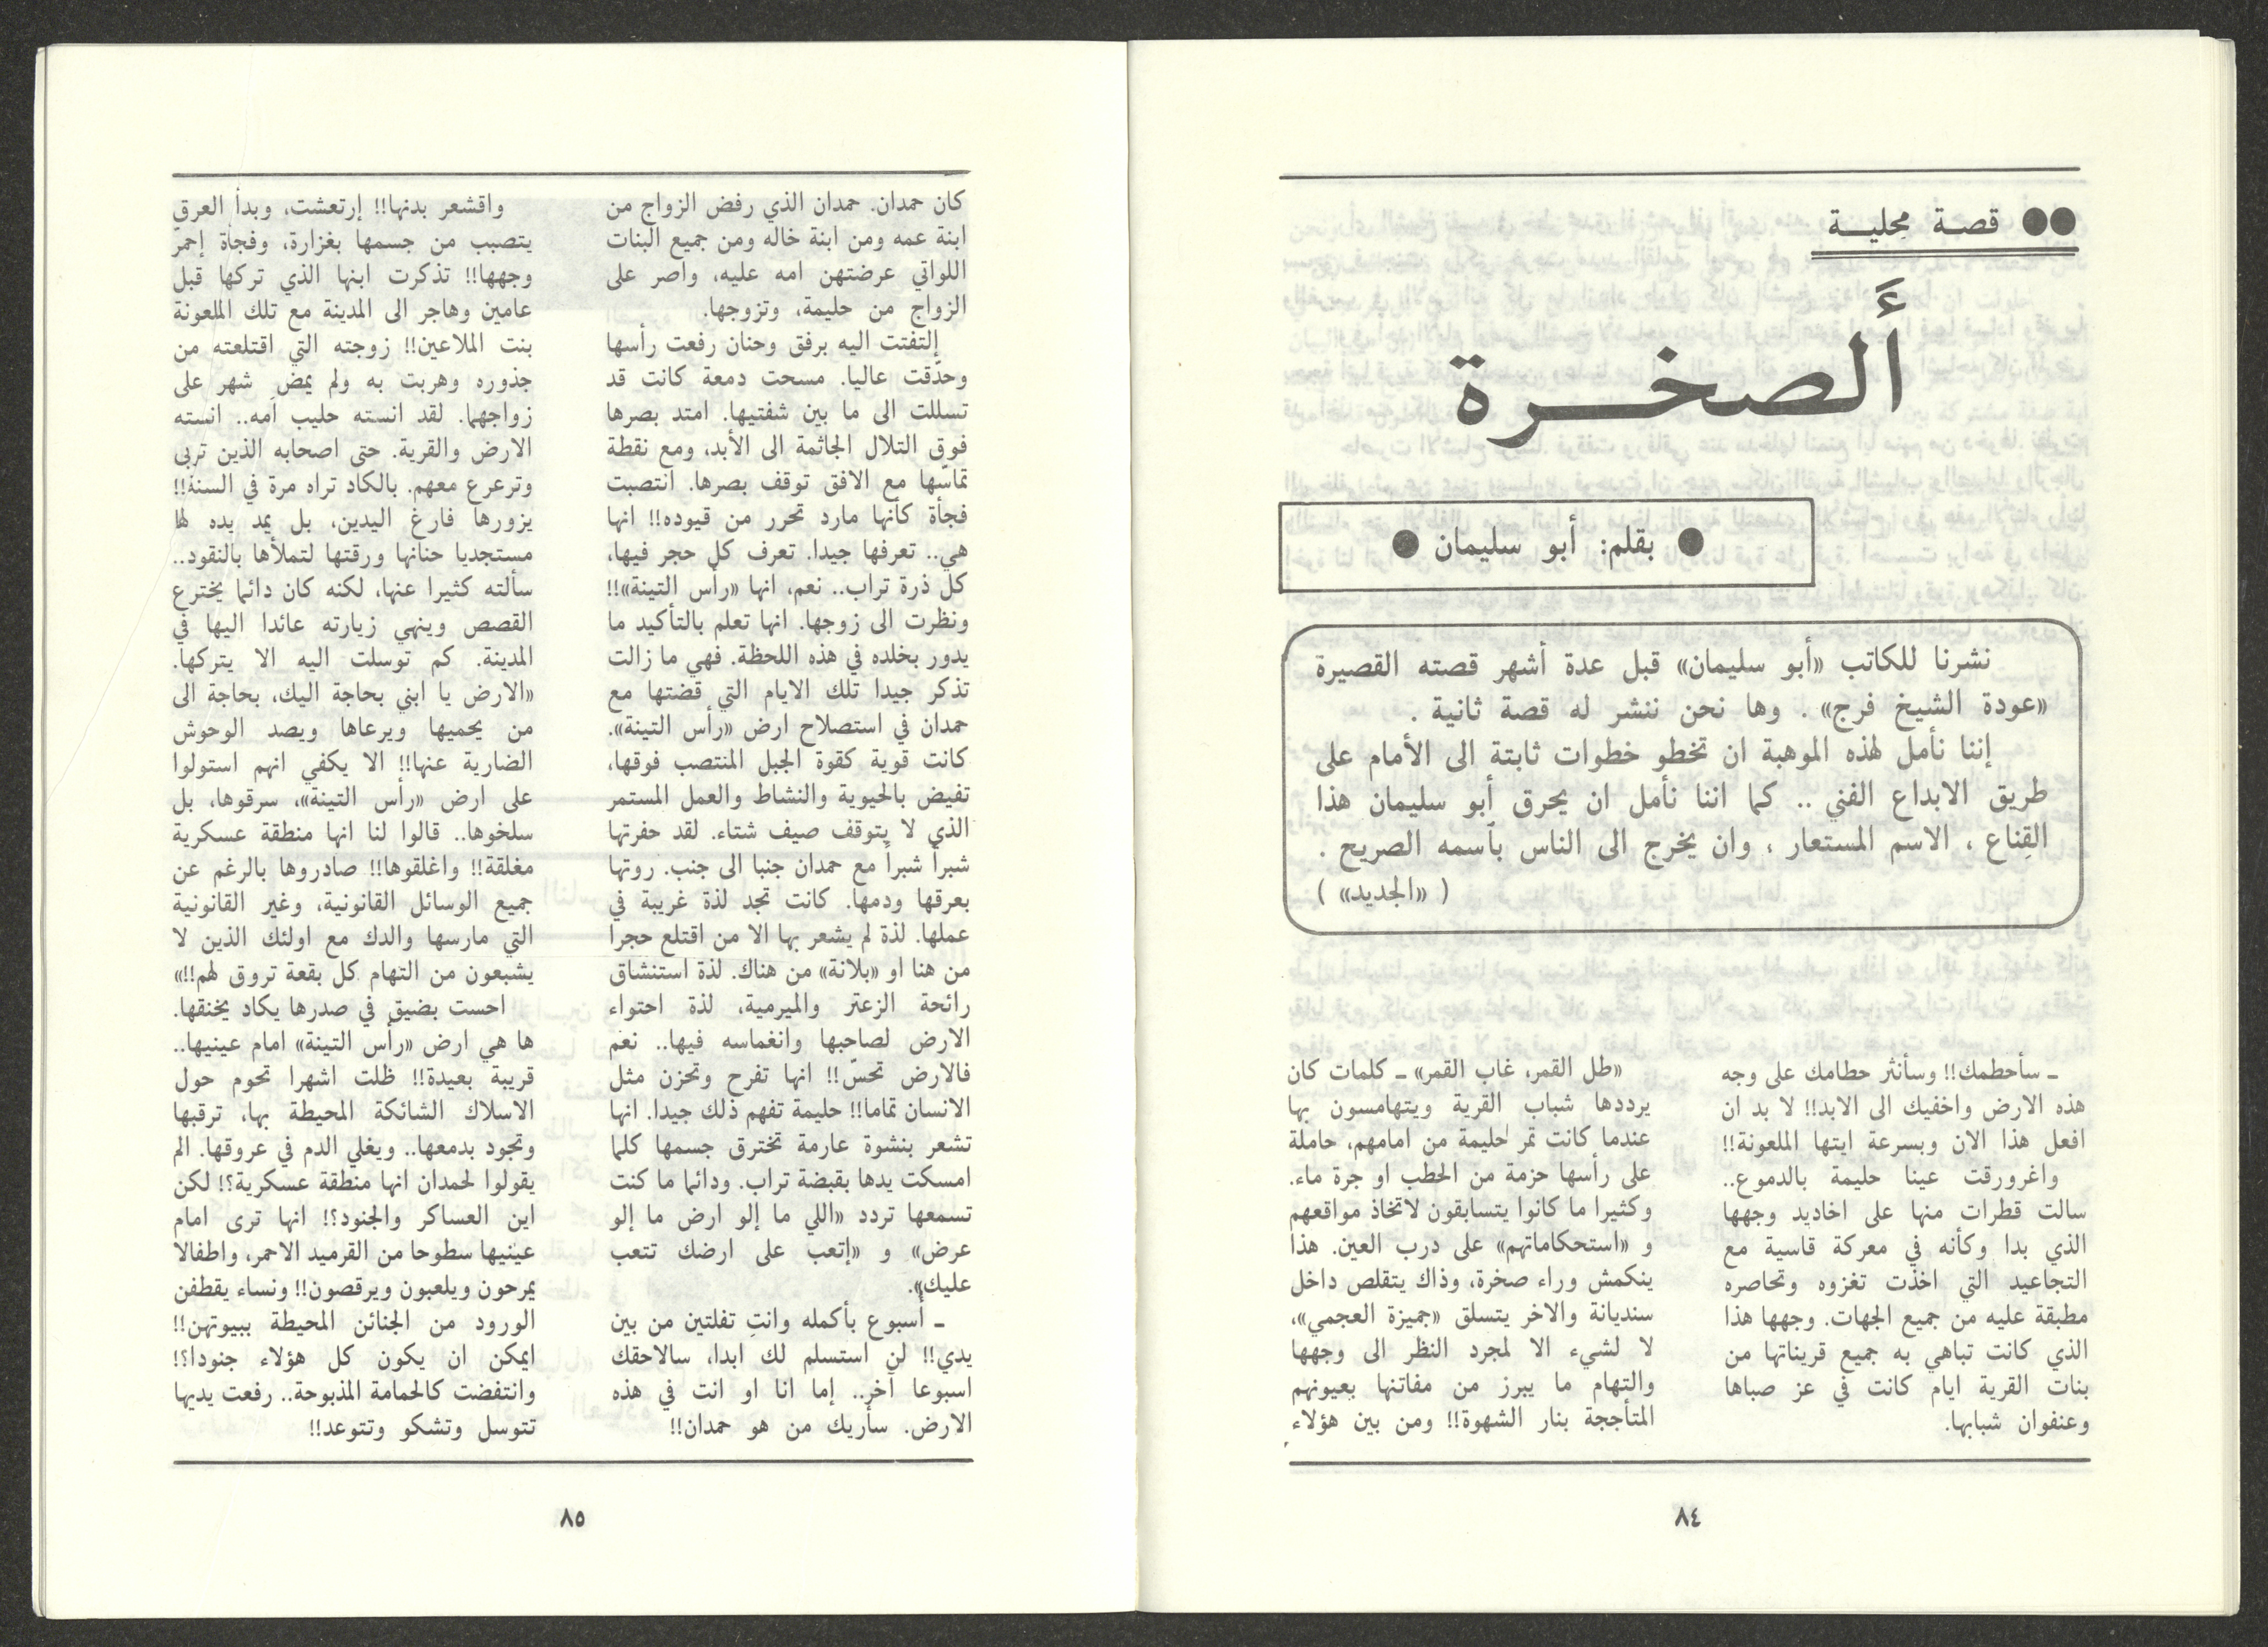 ●● قصة محلية
أَلصخرة
● بقلم: أبو سليمان ●
نشرنا للكاتب «أبو سليمان» قبل عدة أشهر قصته القصيرة
«عودة الشيخ فرج» . وها نحن ننشر له قصة ثانية .
إننا نأمل لهذه الموهبة ان تخطو خطوات ثابتة الى الأمام على
طريق الابداع الفني .. كما اننا نأمل ان يحرق أبو سليمان هذا
القِناع ، الاسم المستعار ، وان يخرج الى الناس بآسمه الصريح .
( «الجديد» )
ـ سأحطمك!! وسأنثر حطامك على وجه
هذه الارض واخفيك الى الابد!! لا بد ان
افعل هذا الان وبسرعة ايتها الملعونة!!
واغرورقت عينا حليمة بالدموع..
سالت قطرات منها على اخاديد وجهها
الذي بدا وكأنه في معركة قاسية مع
التجاعيد التي اخذت تغزوه وتحاصره
مطبقة عليه من جميع الجهات. وجهها هذا
الذي كانت تباهي به جميع قريناتها من
بنات القرية ايام كانت في عز صباها
وعنفوان شبابها.
«طل القمر، غاب القمر» ـ كلمات كان
يرددها شباب القرية ويتهامسون بها
عندما كانت تمر حليمة من امامهم، حاملة
على رأسها حزمة من الحطب او جرة ماء.
وكثيرا ما كانوا يتسابقون لاتخاذ مواقعهم
و «استحكاماتهم» على درب العين. هذا
ينكمش وراء صخرة، وذاك يتقلص داخل
سنديانة والاخر يتسلق «جميزة العجمي»،
لا لشيء الا لمجرد النظر الى وجهها
والتهام ما يبرز من مفاتنها بعيونهم
المتأججة بنار الشهوة!! ومن بين هؤلاء
٨٤
كان حمدان. حمدان الذي رفض الزواج من
ابنة عمه ومن ابنة خاله ومن جميع البنات
اللواتي عرضتهن امه عليه، واصر على
الزواج من حليمة، وتزوجها.
إلتفتت اليه برفق وحنان رفعت رأسها
وحدّقت عاليا. مسحت دمعة كانت قد
تسللت الى ما بين شفتيها. امتد بصرها
فوق التلال الجاثمة الى الأبد، ومع نقطة
تماسّها مع الافق توقف بصرها. انتصبت
فجأة كأنها مارد تحرر من قيوده!! انها
هي.. تعرفها جيدا. تعرف كل حجر فيها،
كل ذرة تراب.. نعم، انها «رأس التينة»!!
ونظرت الى زوجها. انها تعلم بالتأكيد ما
يدور بخلده في هذه اللحظة. فهي ما زالت
تذكر جيدا تلك الايام التي قضتها مع
حمدان في استصلاح ارض «رأس التينة».
كانت قوية كقوة الجبل المنتصب فوقها،
تفيض بالحيوية والنشاط والعمل المستمر
الذي لا يتوقف صيف شتاء. لقد حفرتها
شبراً شبراً مع حمدان جنبا الى جنب. روتها
بعرقها ودمها. كانت تجد لذة غريبة في
عملها. لذة لم يشعر بها الا من اقتلع حجرا
من هنا او «بلانة» من هناك. لذة استنشاق
رائحة الزعتر والميرمية، لذة احتواء
الارض لصاحبها وانغماسه فيها.. نعم
فالارض تحسّ!! انها تفرح وتحزن مثل
الانسان تماما!! حليمة تفهم ذلك جيدا. انها
تشعر بنشوة عارمة تخترق جسمها كلما
امسكت يدها بقبضة تراب. ودائما ما كنت
تسمعها تردد «اللي ما إلو ارض ما إلو
عرض» و «إتعب على ارضك تتعب
عليك».
ـ أسبوع بأكمله وانتِ تفلتين من بين
يدي!! لن استسلم لك ابدا، سالاحقك
اسبوعا آخر.. إما انا او انت في هذه
الارض. سأريك من هو حمدان!!
واقشعر بدنها!! إرتعشت، وبدأ العرق
يتصبب من جسمها بغزارة، وفجأة إحمرّ
وجهها!! تذكرت ابنها الذي تركها قبل
عامين وهاجر الى المدينة مع تلك الملعونة
بنت الملاعين!! زوجته التي اقتلعته من
جذوره وهربت به ولم يمض شهر على
زواجهما. لقد انسته حليب امه.. انسته
الارض والقرية. حتى اصحابه الذين تربى
وترعرع معهم. بالكاد تراه مرة في السنة!!
يزورها فارغ اليدين، بل يمد يده لها
مستجديا حنانها ورقتها لتملأها بالنقود..
سألته كثيرا عنها، لكنه كان دائما يخترع
القصص وينهي زيارته عائدا اليها في
المدينة. كم توسلت اليه الا يتركها.
«الارض يا ابني بحاجة اليك، بحاجة الى
من يحميها ويرعاها ويصد الوحوش
الضارية عنها!! الا يكفي انهم استولوا
على ارض «رأس التينة»، سرقوها، بل
سلخوها.. قالوا لنا انها منطقة عسكرية
مغلقة!! واغلقوها!! صادروها بالرغم عن
جميع الوسائل القانونية، وغير القانونية
التي مارسها والدك مع اولئك الذين لا
يشبعون من التهام كل بقعة تروق لهم!!»
احست بضيق في صدرها يكاد يخنقها.
ها هي ارض «رأس التينة» امام عينيها..
قريبة بعيدة!! ظلت اشهرا تحوم حول
الاسلاك الشائكة المحيطة بها، ترقبها
وتجود بدمعها.. ويغلي الدم في عروقها. الم
يقولوا لحمدان انها منطقة عسكرية؟! لكن
اين العساكر والجنود؟! انها ترى امام
عينيها سطوحا من القرميد الاحمر، واطفالا
يمرحون ويلعبون ويرقصون!! ونساء يقطفن
الورود من الجنائن المحيطة ببيوتهن!!
ايمكن ان يكون كل هؤلاء جنودا؟!
وانتفضت كالحمامة المذبوحة.. رفعت يديها
تتوسل وتشكو وتتوعد!!
٨٥